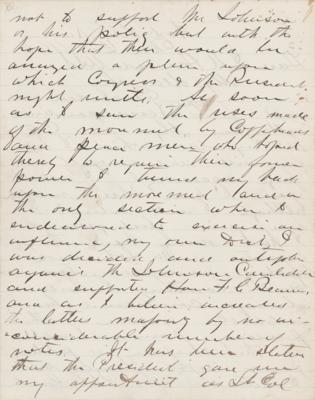 not to support Mr Johnson
or his policy but with the
hope that there would be
arranged a plan upon
which Congress & the President
might unite. As soon
as I saw the uses made
of the movement by Copperheads
and peace men who hoped
thereby to regain their former
power I turned my back
upon the movement and in
the only section where I
endeavored to exercise an
influence, my own Dist, I
was decided and outspoken
against the Johnson Candidate
and supported Hon H C Deming
and as I believe increased
the latters majority by no in-
considerable number of
votes. It has been stated
that the President gave me
my appointment as Lt Col